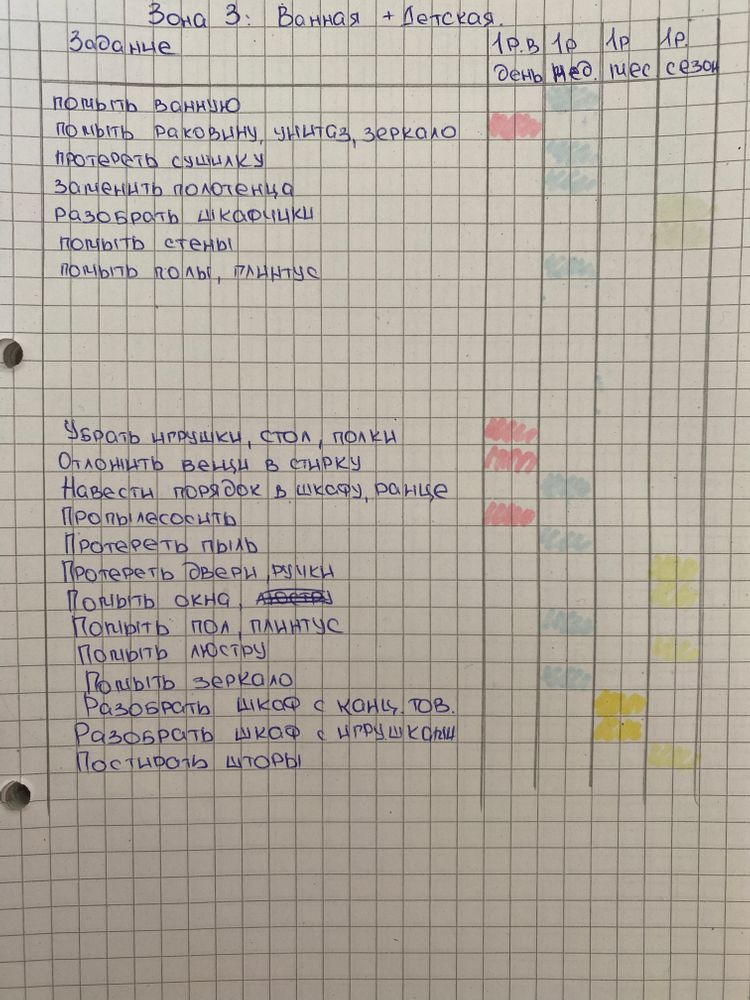 Зона 3: Ванная + Детская.
Задание 1р.в день 1р нед. 1р мес 1р. сезон
помыть ванную
помыть раковину, унитаз, зеркало
протереть сушилку
заменить полотенца
разобрать шкафчики
помыть стены
помыть полы, плинтус
Убрать игрушки, стол, полки
Отложить вещи в стирку
Навести порядок в шкафу, ранце
Пропылесосить
Протереть пыль
Протереть двери, ручки
Помыть окна, люстру
Помыть пол, плинтус
Помыть люстру
Помыть зеркало
Разобрать шкаф с канц. тов.
Разобрать шкаф с игрушками
Постирать шторы